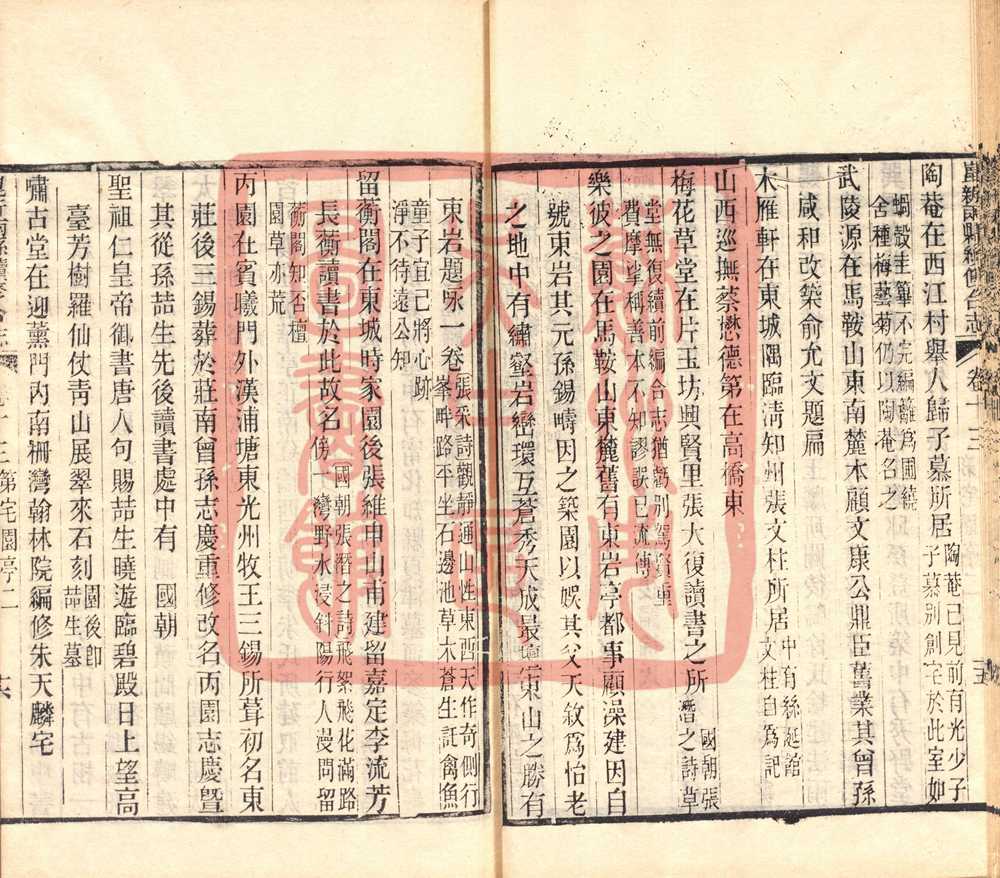 崑新兩縣續修合志 卷十三 十五
陶菴在西江村舉人歸子慕所居 陶菴已見前有光少子
子慕別創室於此室如
蝸殼圭篳不完編籬爲圃繞
舍種梅藝菊仍以陶菴名之
武陵源在馬鞍山東南麓本顧文康公鼎臣舊業其曾孫
咸和改築俞允文題扁
木雁軒在東城隅臨淸知州張文柱所居 中有絲綎館
文柱自爲記
山西巡撫蔡懋德第在高僑東
梅花草堂在片玉坊興賢里張大復讀書之所 國朝張
潛之詩草
堂無復續前編合志猶
費摩挲稱善本不知謬誤已流傳
樂彼之園在馬鞍山東麓舊有東岩亭都事顧澡建因自
號東岩其元孫錫疇因之築園以娛其父天敘爲怡老
之地中有繡壑岩巒環互蒼秀天成最擅東山之勝有
東岩題咏一卷 張采詩觀靜通山性東西天作奇側行
峯畔路平坐石邊池草木蒼生託禽魚
童子宜已將心跡
淨不待遠公知
留蘅閣在東城時家園後張維申山甫建留嘉定李流芳
長蘅讀書於此故名 國朝張潛之詩飛絮飛花滿路
傍一灣野水浸斜陽行人漫問留
蘅閣知否檀
園草亦荒
丙園在賓曦門外漢浦塘東光州牧王三錫所葺初名東
莊後三錫葬於莊南曾孫志慶重修改名丙園志慶曁
其從孫喆生先後讀書處中有 國朝
聖祖仁皇帝御書唐人句賜喆生曉遊臨碧殿日上望高
臺芳樹羅仙仗靑山展翠來石刻 園後卽
喆生墓
嘯古堂在迎薰門內南栅灣翰林院編修朱天麟宅
第宅園亭二 十六